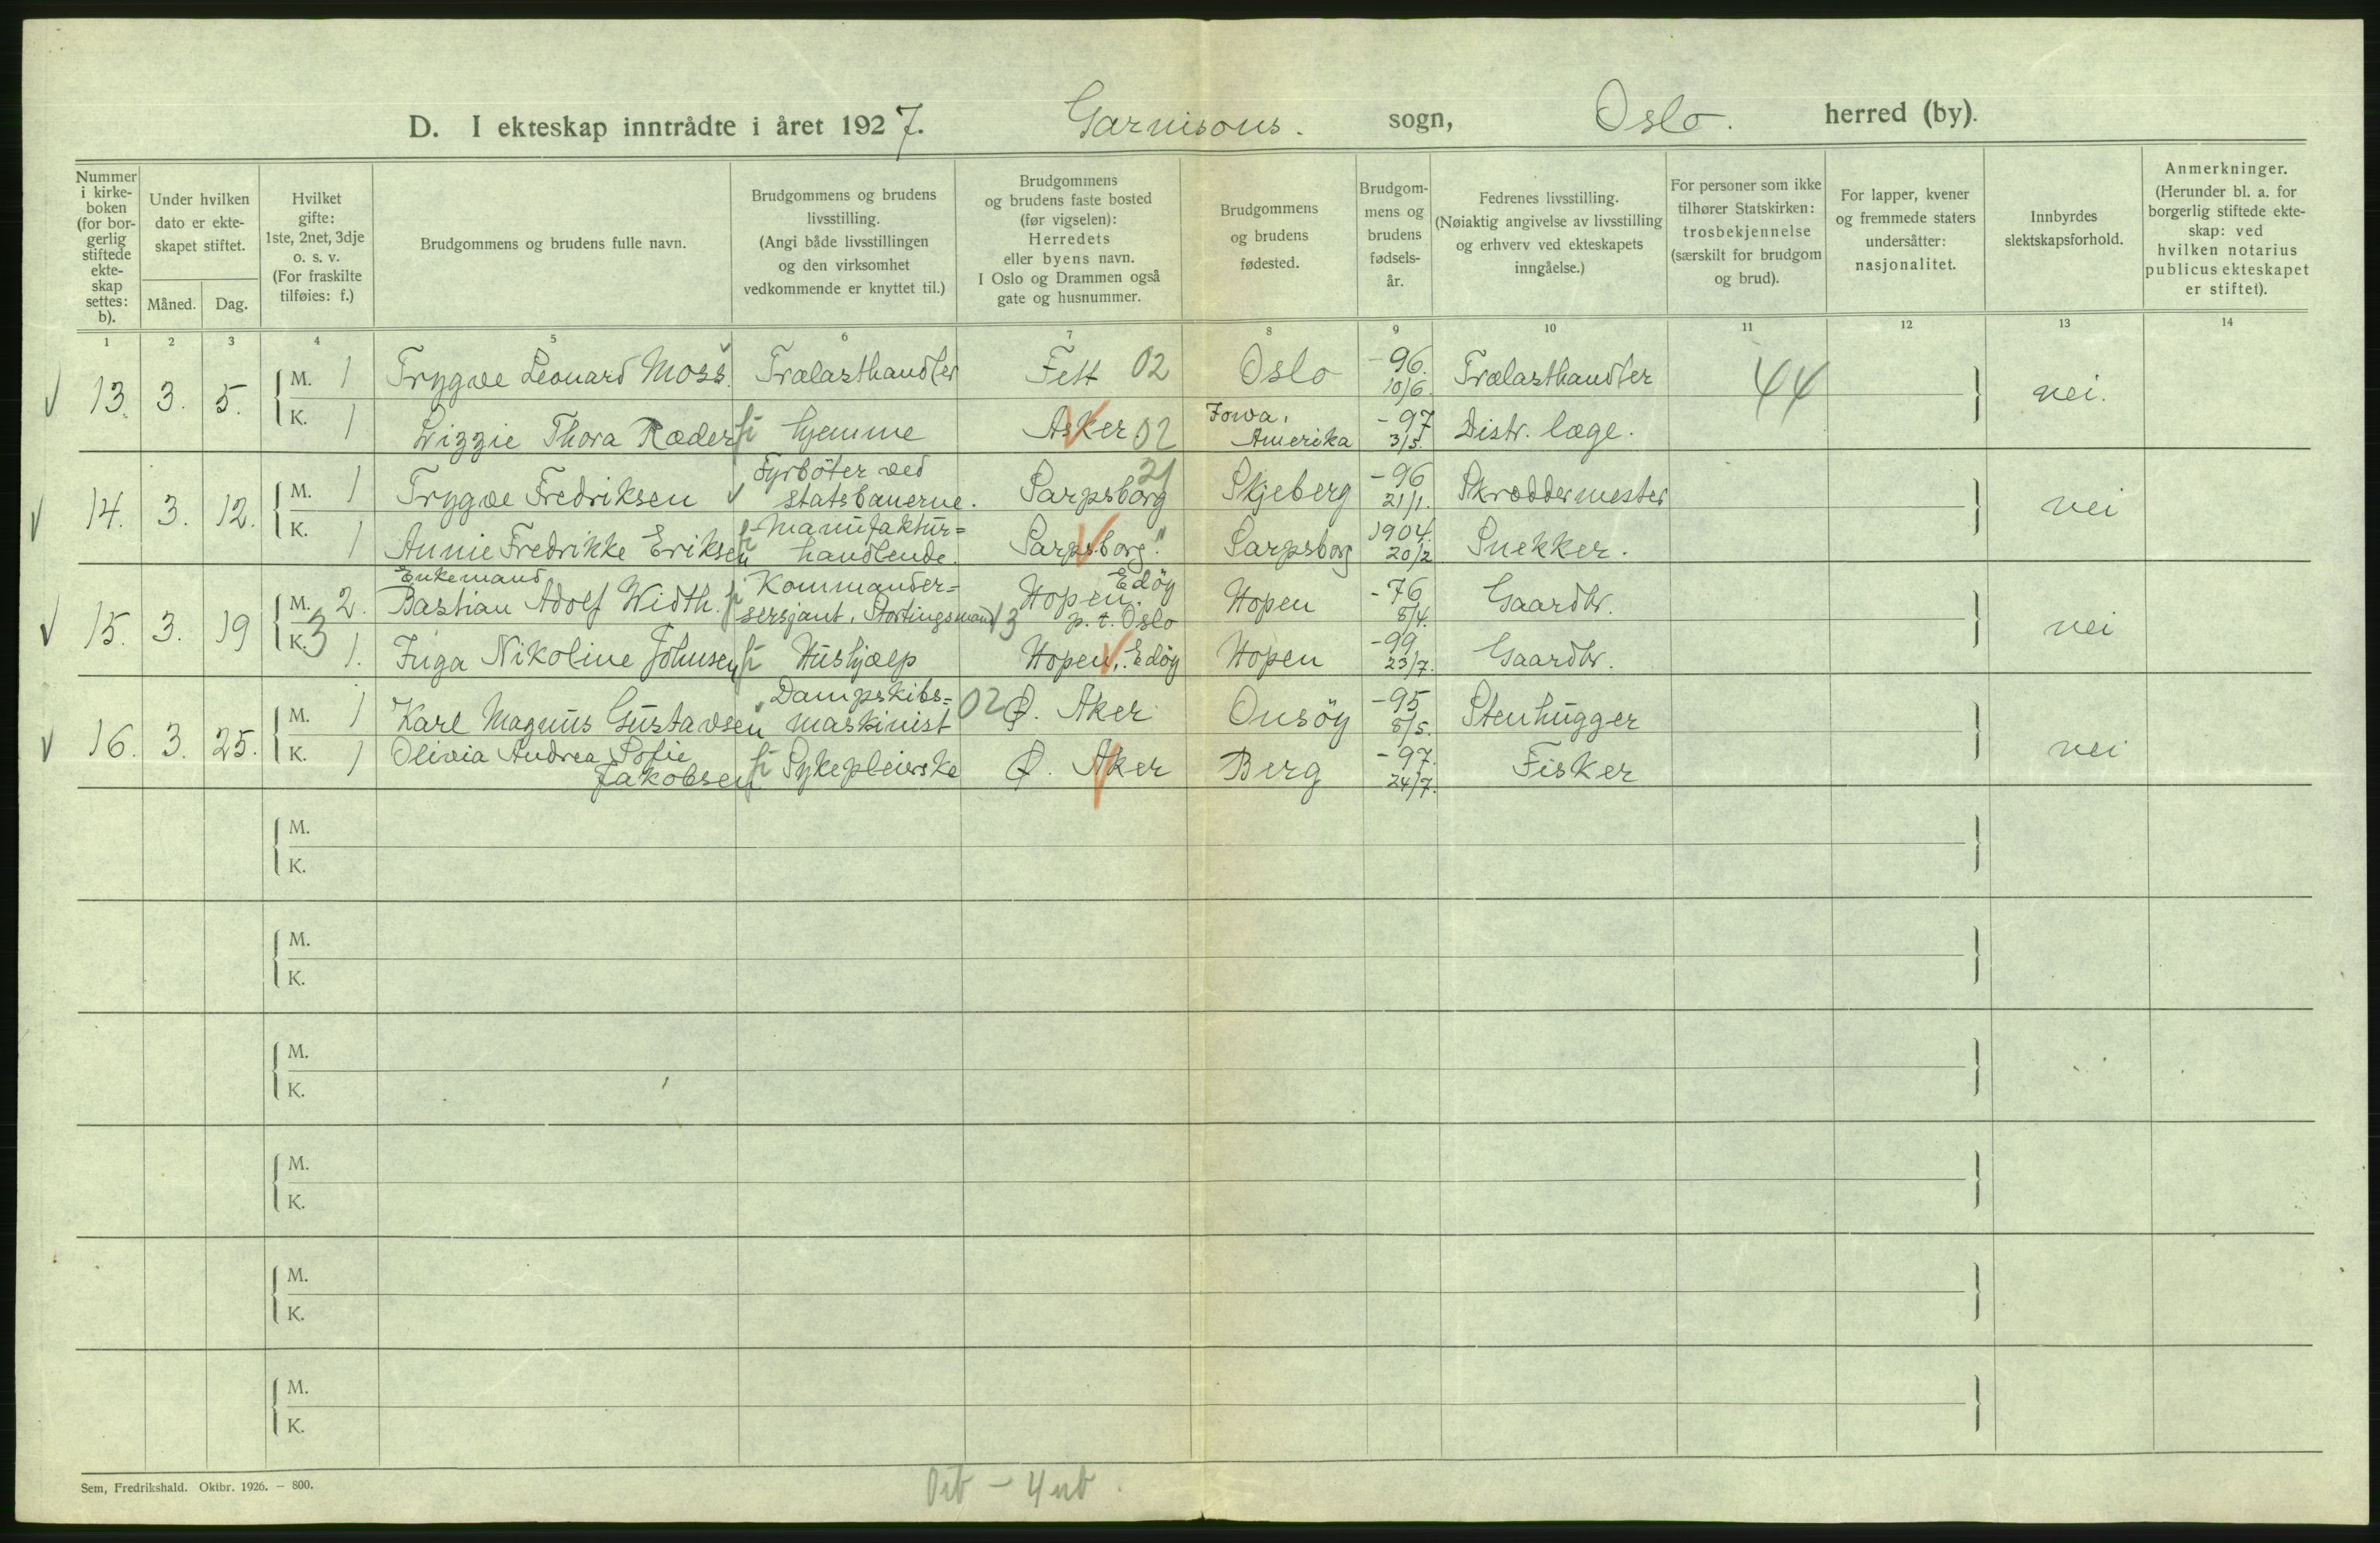 D. I ekteskap inntrådte i året 1927. Garnisons. sogn, Oslo. herred (by).
Nummer i kirkeboken (for borgerlig stiftede ekteskap settes: b).
Under hvilken dato er ekteskapet stiftet.
Måned. Dag.
Hvilket gifte: 1ste, 2net, 3dje o. s. v. (For fraskilte tilføies: f.)
Brudgommens og brudens fulle navn.
Brudgommens og brudens livsstilling. (Angi både livsstillingen og den virksomhet vedkommende er knyttet til.)
Brudgommens og brudens faste bosted (før vigselen): Herredets eller byens navn. I Oslo og Drammen også gate og husnummer.
Brudgommens og brudens fødested.
Brudgommens og brudens fødselsår.
Fedrenes livsstilling. (Nøiaktig angivelse av livsstilling og erhverv ved ekteskapets inngåelse.)
For personer som ikke tilhører Statskirken: trosbekjennelse (særskilt for brudgom og brud).
For lapper, kvener og fremmede staters undersåtter: nasjonalitet.
Innbyrdes slektskapsforhold.
Anmerkninger. (Herunder bl. a. for borgerlig stiftede ekteskap: ved hvilken notarius publicus ekteskapet er stiftet).
1 2 3 4 5 6 7 8 9 10 11 12 13 14
√ 13. 3. 5. M. 1 Trygve Leonard Moss. Trælasthandler Fett 02 Oslo -96. 10/6. Trælasthandler 44 nei.
K. 1 Lizzie Thora Ræder hjemme Asker 02 Iowa, Amerika -97 3/5. Distr. læge.
√ 14. 3. 12. M. 1 Trygve Fredriksen √ Fyrböter ved statsbanerne. Sarpsborg 21 Skjeberg -96 21/1. Skræddermester nei
K. 1 Annie Fredrikke Eriksen Manufaktur= handlende. Sarpsborg " Sarpsborg 1904. 20/2 Snekker.
√ 15. 3. 19 M. 2. Enkemand Bastian Adolf Width. Kommander= sersjant, Stortingsmand 13 Hopen. Edöy p. t. Oslo Hopen -76 8/4. Gaardbr. nei
K. 3 1. Inga Nikoline Johnsen Hushjælp Hopen, Edöy Hopen -99 23/7. Gaardbr.
√ 16. 3. 25. M. 1 Karl Magnus Gustavsen Dampskibs= maskinist 02 Ø. Aker Onsöy -95 8/5. Stenhugger nei
K. 1 Olivia Andrea Sofie Jakobsen Sykepleierske Ø. Aker Berg -97. 24/7. Fisker
M.
K.
M.
K.
M.
K.
M.
K.
M.
K.
M.
K.
Sem, Fredrikshald. Oktbr. 1926. — 800.